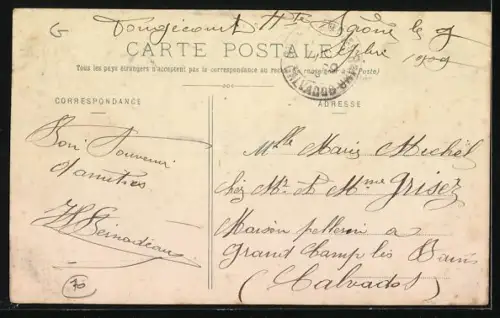 G
Hte Saône le 9
7bre 1909
CARTE POSTALE
Tous les pays étrangers n'acceptent pas la correspondance au recto (se renseigner à la Poste)
CORRESPONDANCE
ADRESSE
CALVADOS
Bon Souvenir
d'amitiés
Mlle Marie Michel
chez Mr & Mme Grisez
Maison pellerin a
Grand Camp les Bains
(Calvados)
70